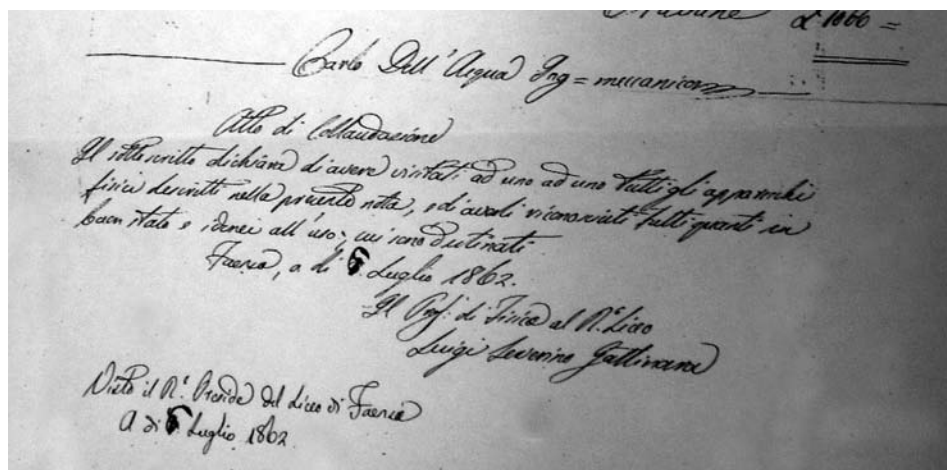 £ 1066 =
Carlo Dell' Acqua Ing = meccanico
Atto di Collaudazione
Il sottoscritto dichiara di avere visitati ad uno ad uno tutti gli apparecchi
fisici descritti nella presente nota, e di averli riconosciuti tutti quanti in
buon stato e idonei all'uso, cui sono destinati
Faenza, a di 6 Luglio 1862.
Il Prof. di Fisica al R.º Liceo
Luigi Severino Gattinara
Visto il R.º Preside del Liceo di Faenza
A di 6 Luglio 1862